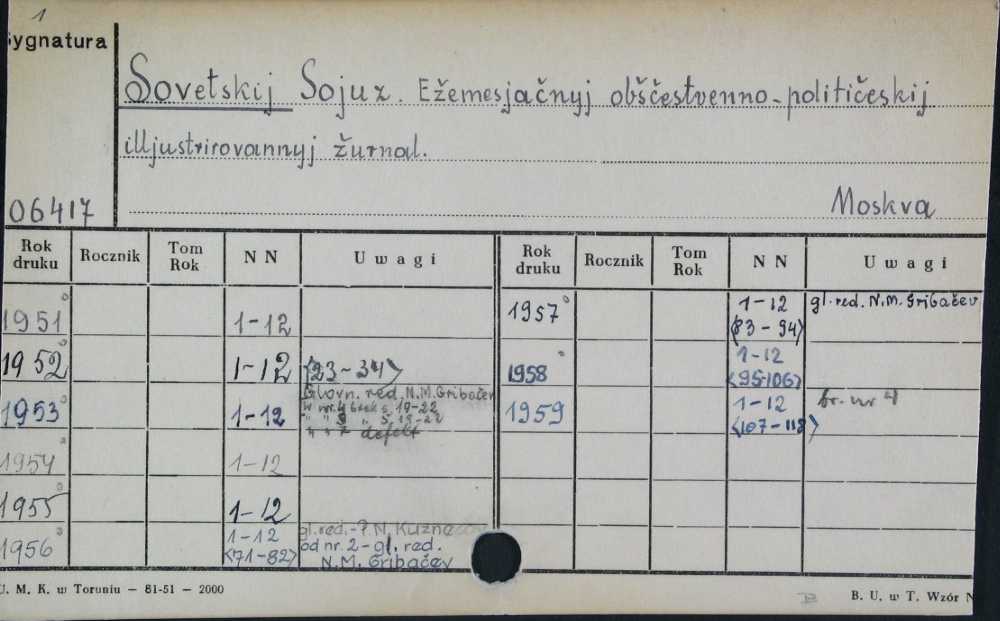 1
Sygnatura
Sovetskij Sojuz. Ežemesjačnyj obščestvenno-političeskij
illjustrirovannyj žurnal.
06417
Moskva
Rok druku Rocznik Tom Rok N N Uwagi Rok druku Rocznik Tom Rok N N Uwagi
1951 1-12
1957 1-12 gl. red. N.M. Gribačev
<83-94>
1952 1-12 <23-34>
1958 1-12
<95-106>
1953 1-12 Glavn. red. N.M. Gribačev
w nr. 4 brak s. 19-22
" " 5, 19-22
" " 7 defekt
1959 1-12 br. nr 4
<107-118>
1954 1-12
1955 1-12
1956 1-12 gl. red. - N. Kuznecov
<71-82> od nr. 2 - gl. red.
N.M. Gribačev
U. M. K. w Toruniu — 81-51 — 2000
B. U. w T. Wzór N